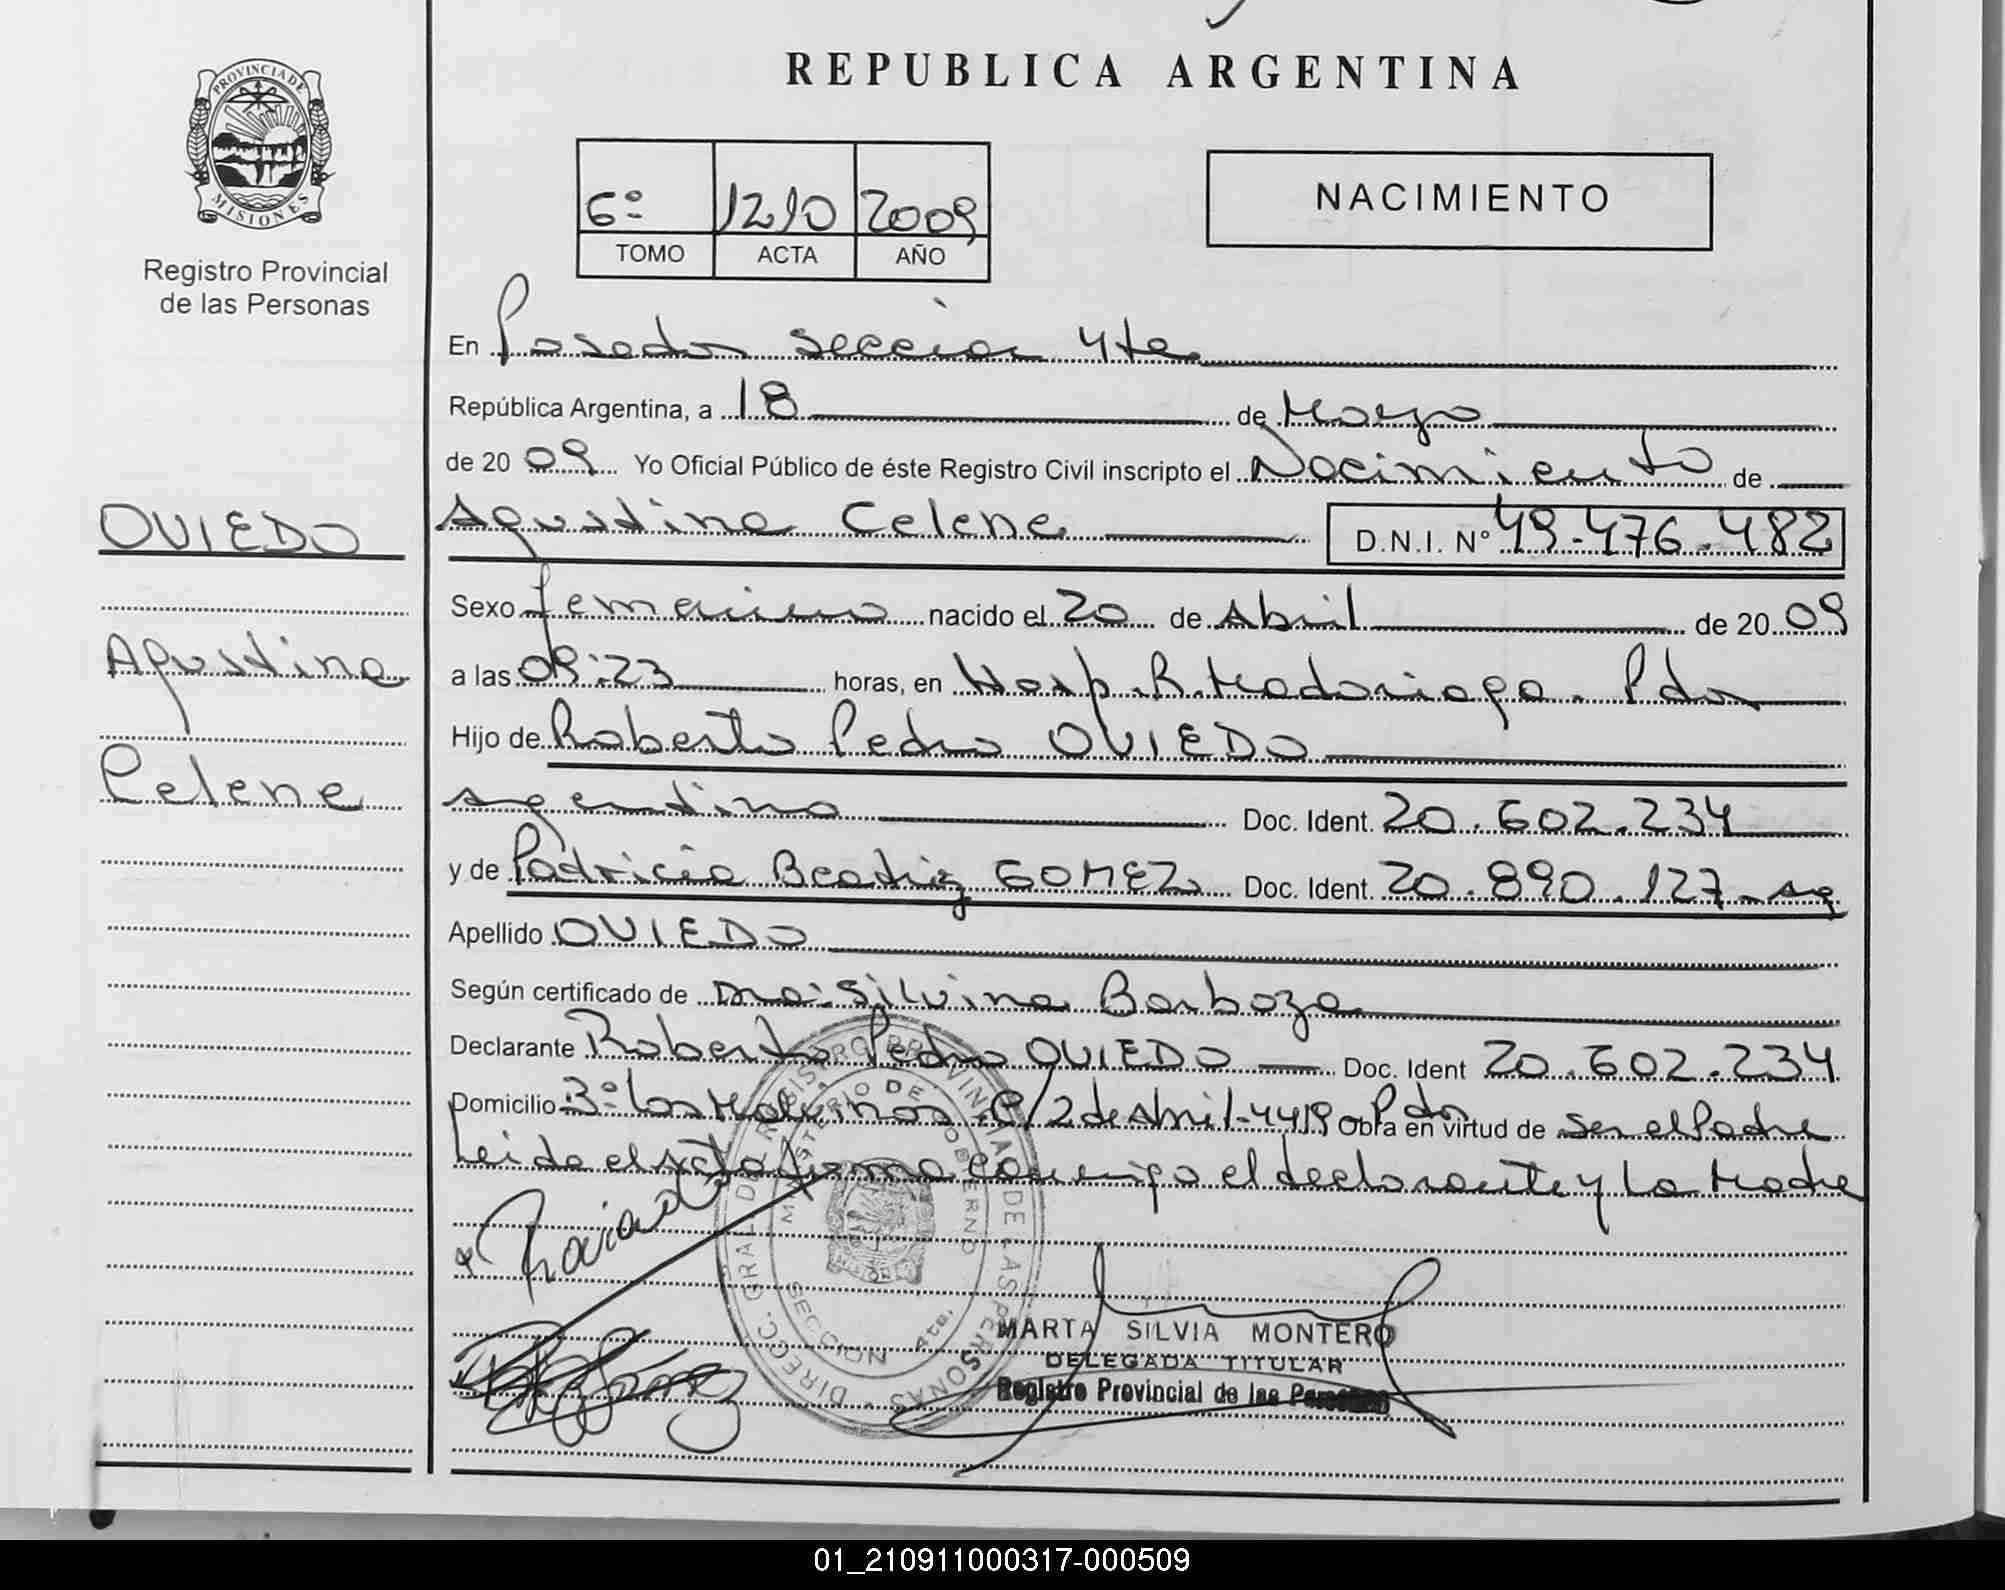 REPUBLICA ARGENTINA
PROVINCIA DE MISIONES
Registro Provincial
de las Personas
6º 1210 2009
TOMO ACTA AÑO
NACIMIENTO
En Posadas seccion 4ta
República Argentina, a 18 de Mayo
de 20 09 Yo Oficial Público de éste Registro Civil inscripto el Nacimiento de
OVIEDO
Agustina
Celene
Agustina Celene D.N.I. Nº 49.476.482
Sexo femenino nacido el 20 de Abril de 20 09
a las 09:23 horas, en Hosp. R. Madariaga. Pdas
Hijo de Roberto Pedro OVIEDO
argentino Doc. Ident. 20.602.234
y de Patricia Beatriz GOMEZ Doc. Ident. 20.890.127 - arg
Apellido OVIEDO
Según certificado de Dra: Silvina Barboza
Declarante Roberto Pedro OVIEDO Doc. Ident 20.602.234
Domicilio Bº Las Malvinas C/ 2 de Abril-4419 Pdas Obra en virtud de ser el Padre
Leida el acta firma conmigo el declarante y la Madre
DIRECC. GRAL. DE REGISTRO PROVINCIAL DE LAS PERSONAS
MINISTERIO DE GOBIERNO
SECCION 4ta.
MARTA SILVIA MONTERO
DELEGADA TITULAR
Registro Provincial de las Personas
01_210911000317-000509